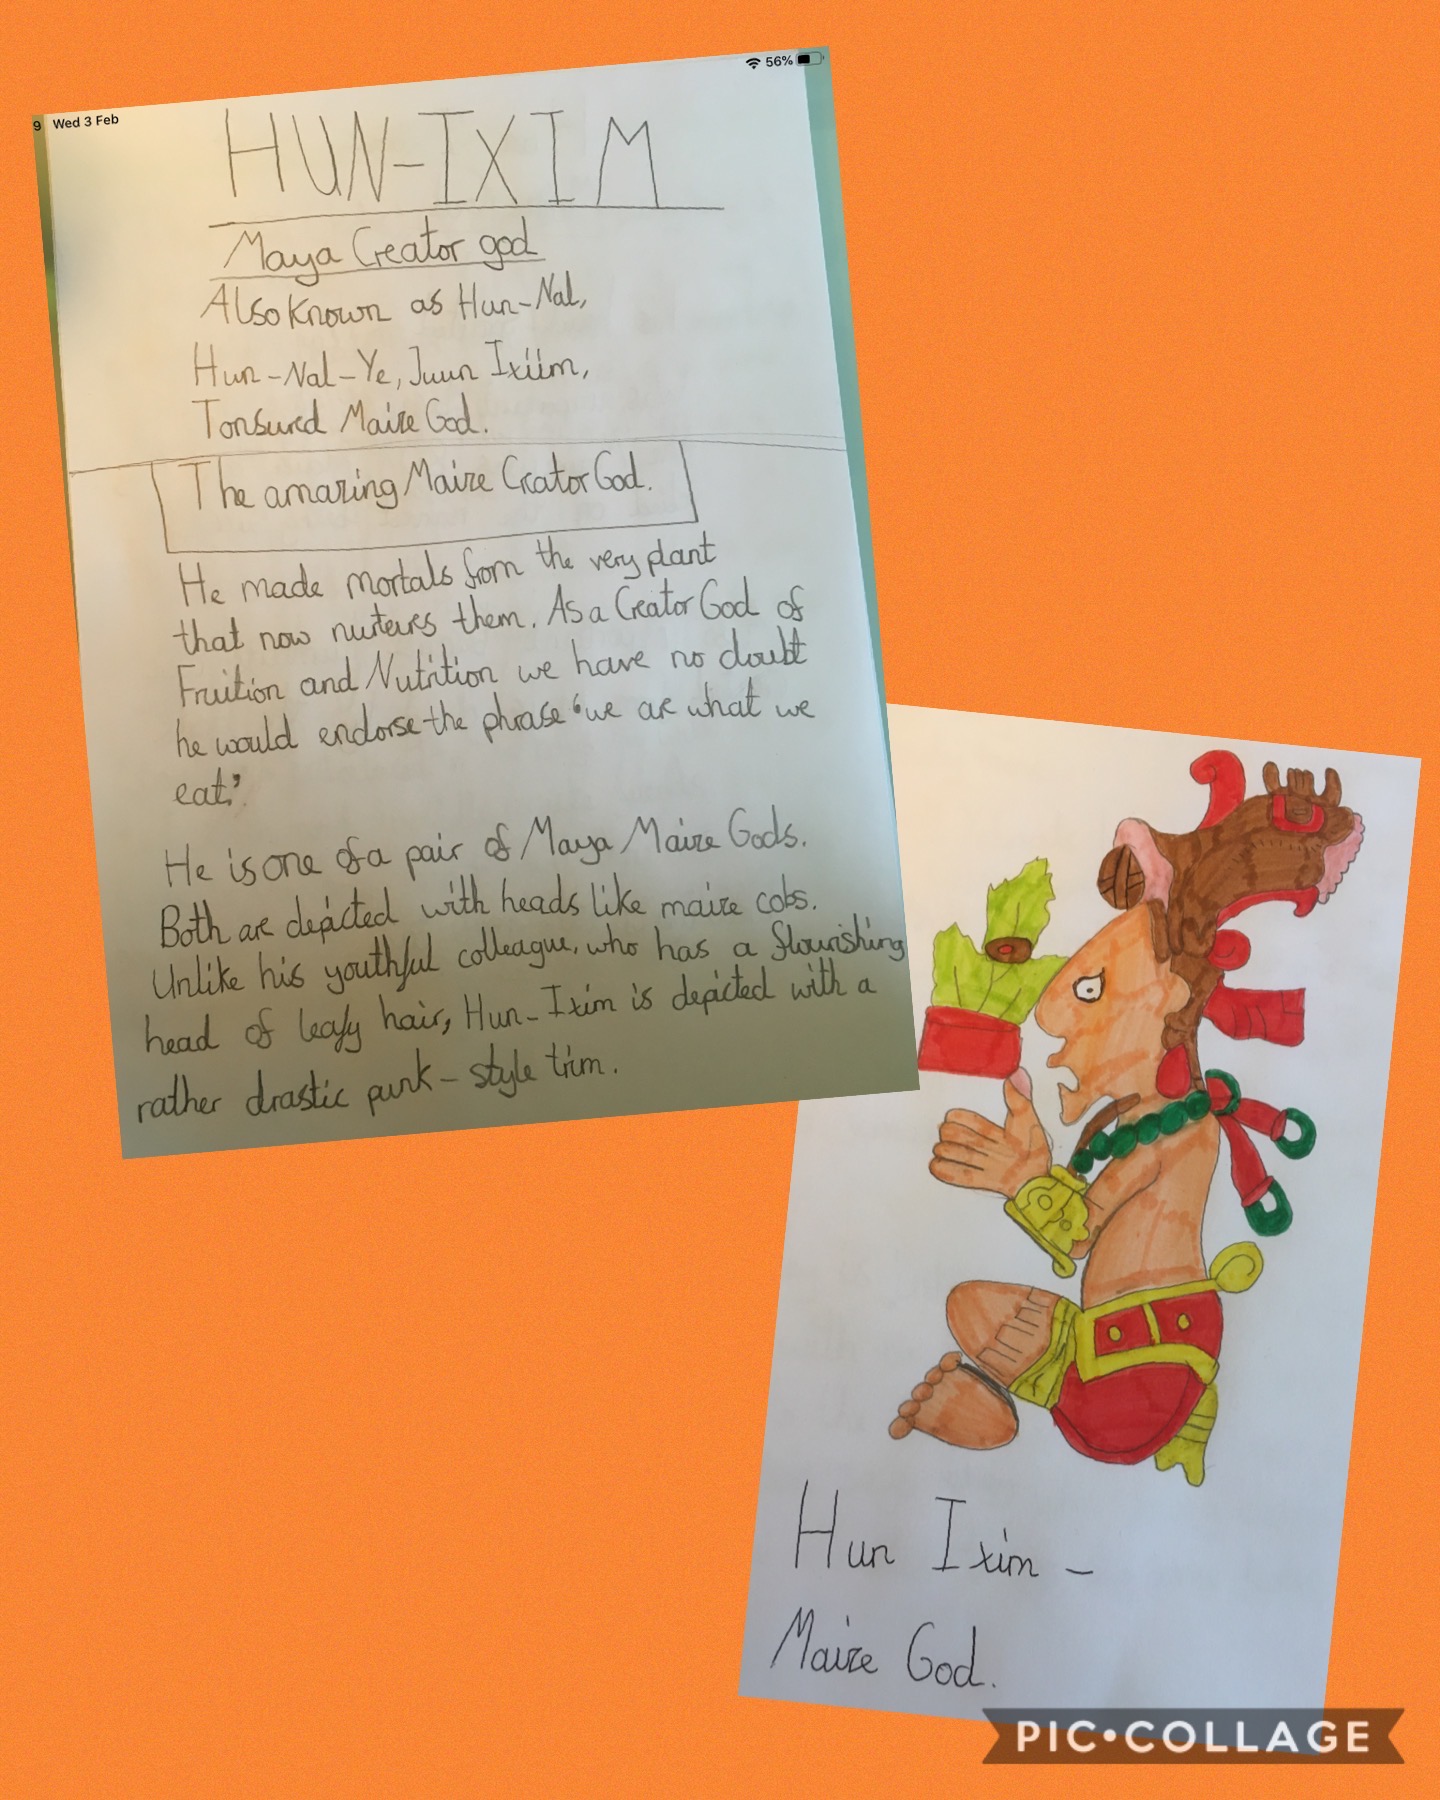 9 Wed 3 Feb
56%
HUN-IXIM
Maya Creator god
Also Known as Hun-Nal,
Hun-Nal-Ye, Juun Ixiim,
Tonsured Maize God.
The amazing Maize Creator God.
He made mortals from the very plant
that now nurteurs them. As a Creator God of
Fruition and Nutrition we have no doubt
he would endorse the phrase 'we are what we
eat.'
He is one of a pair of Maya Maize Gods.
Both are depicted with heads like maize cobs.
Unlike his youthful colleague, who has a flourishing
head of leafy hair, Hun-Ixim is depicted with a
rather drastic punk-style trim.
Hun Ixim -
Maize God.
PIC•COLLAGE